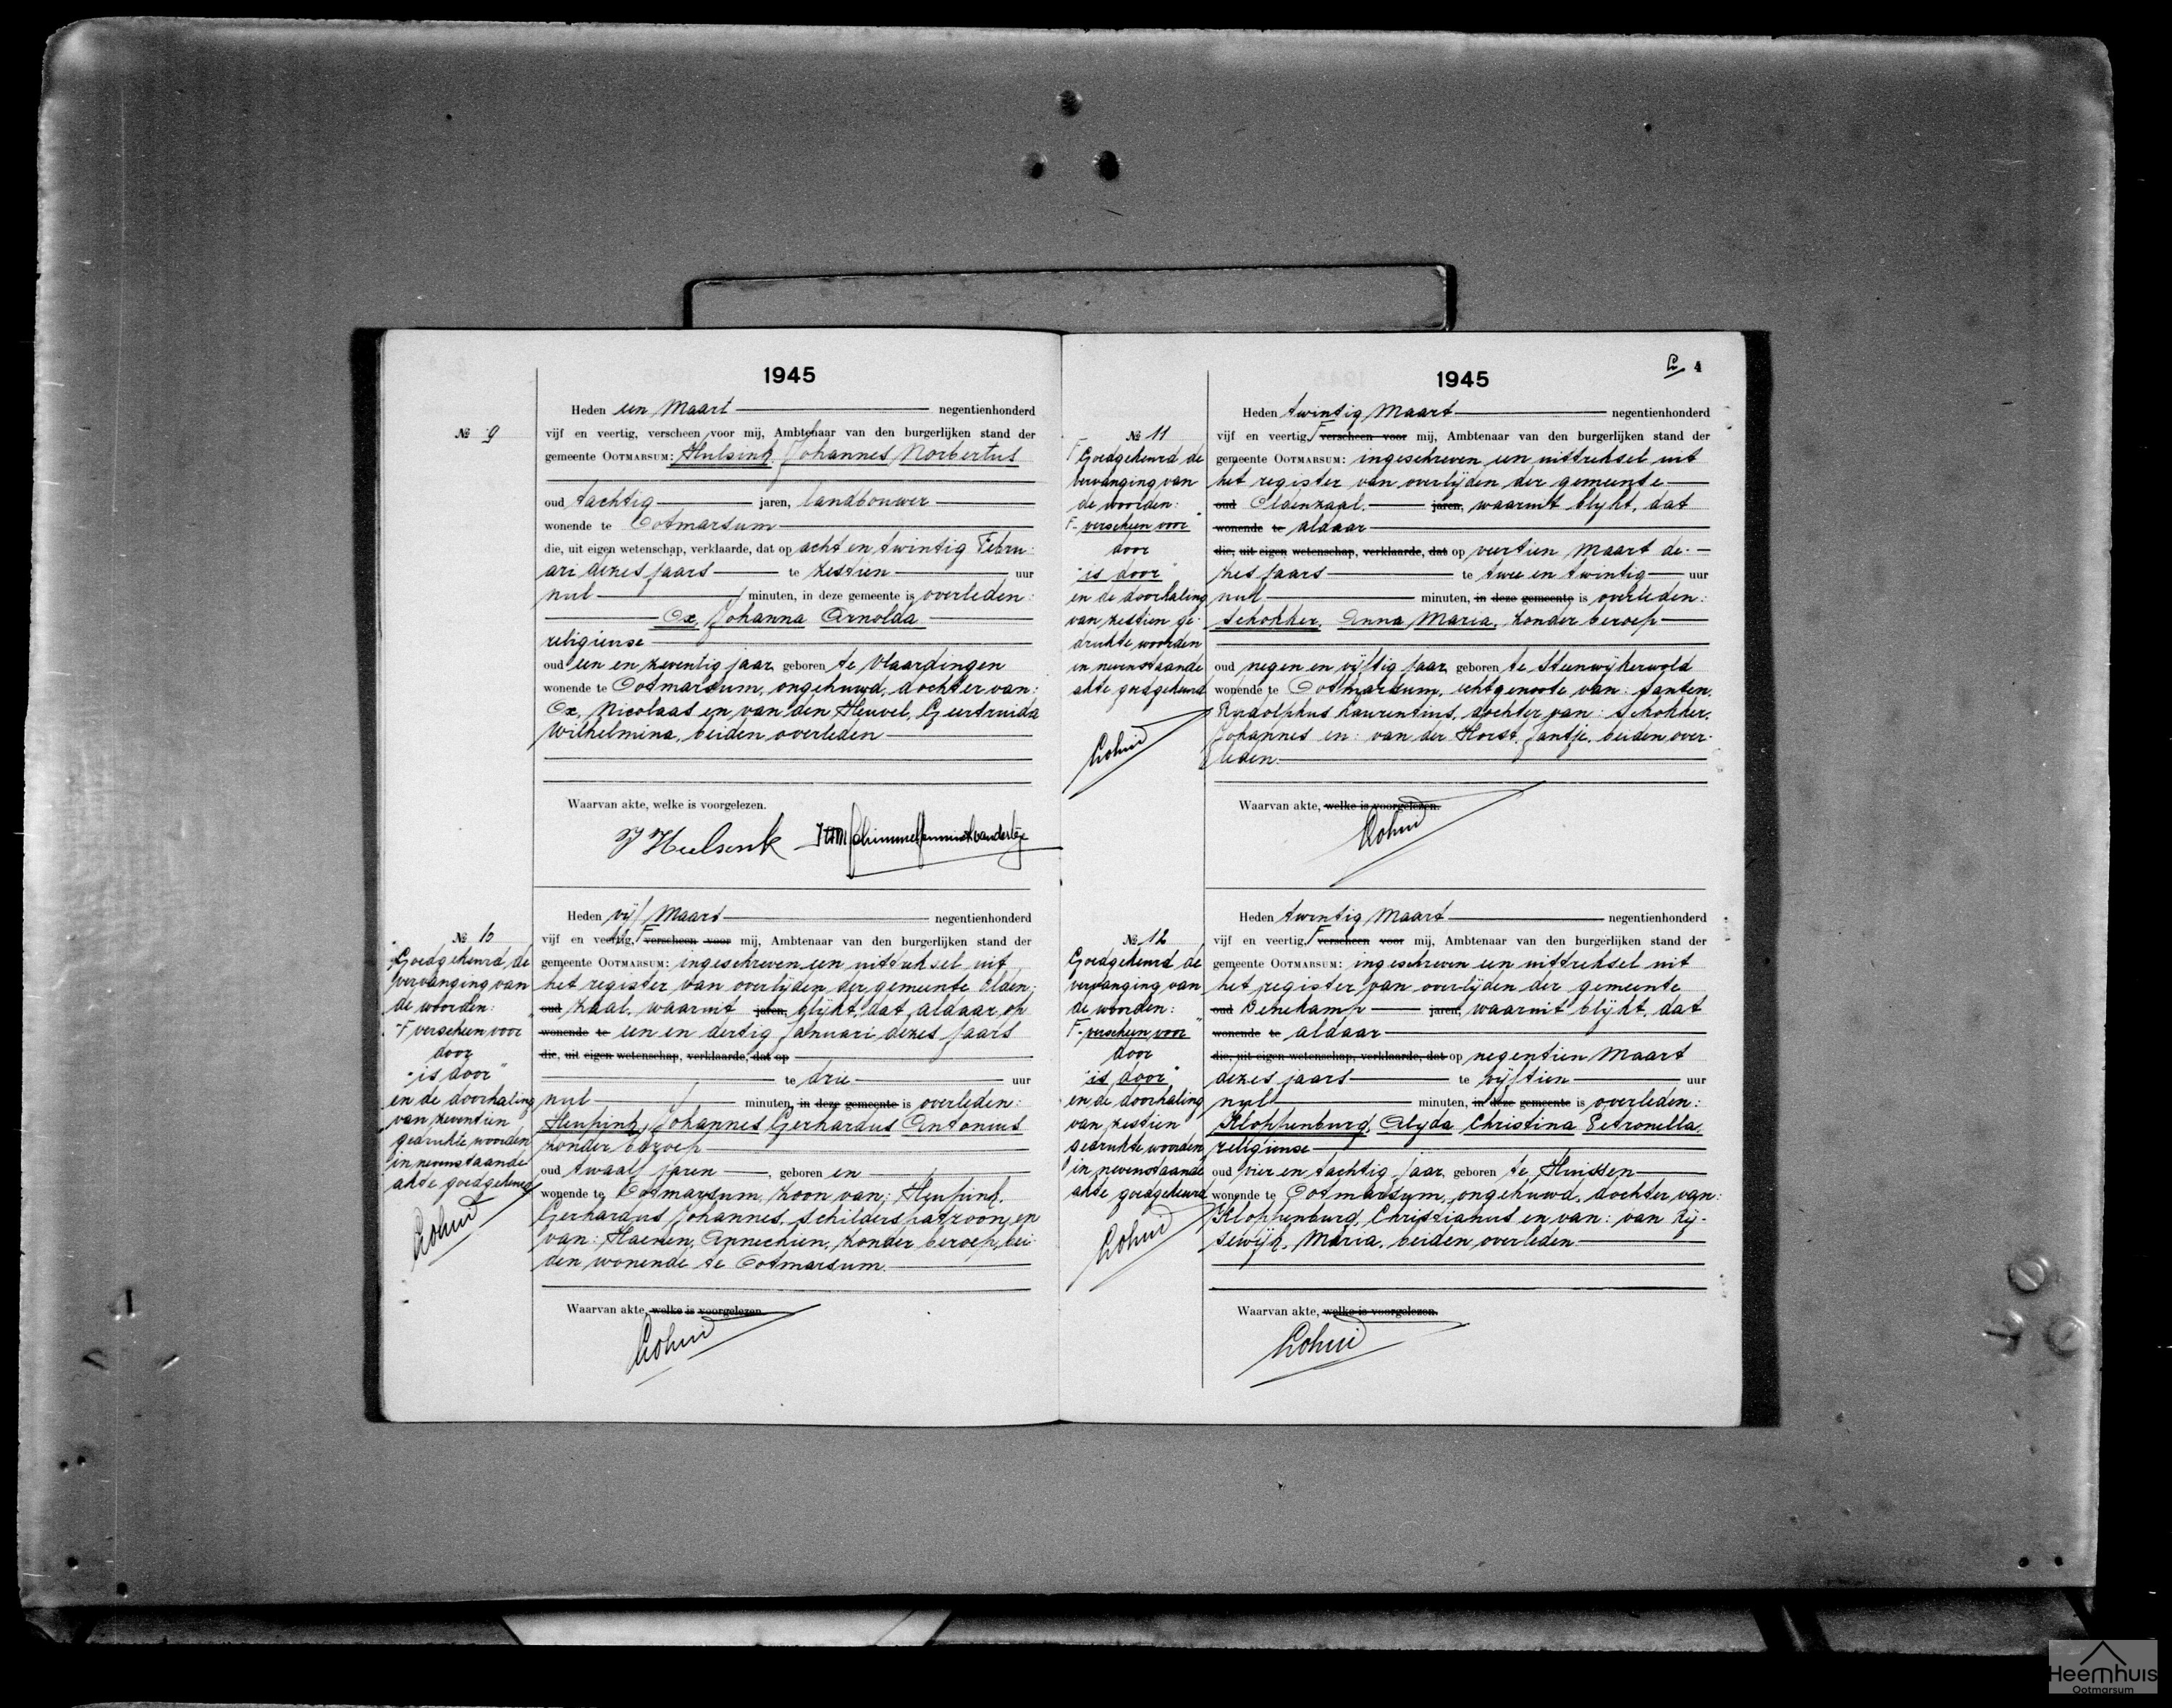 1945
№ 9
Heden een Maart negentienhonderd
vijf en veertig, verscheen voor mij, Ambtenaar van den burgerlijken stand der
gemeente OOTMARSUM: Hulsink, Johannes Norbertus
oud tachtig jaren, landbouwer
wonende te Ootmarsum
die, uit eigen wetenschap, verklaarde, dat op acht en twintig Febru-
ari dezes jaars te zestien uur
nul minuten, in deze gemeente is overleden:
Ox, Johanna Arnolda
religieuse
oud een en zeventig jaar, geboren te Vlaardingen
wonende te Ootmarsum, ongehuwd, dochter van:
Ox, Nicolaas en van den Heuvel, Geertruida
Wilhelmina, beiden overleden
Waarvan akte, welke is voorgelezen.
J Hulsink
№ 10
Goedgekeurd de
vervanging van
de woorden:
"F verscheen voor
door
"is door"
en de doorhaling
van zeventien
gedrukte woorden
in nevenstaande
akte goedgekeurd
Heden vijf Maart negentienhonderd
vijf en veertig, F verscheen voor mij, Ambtenaar van den burgerlijken stand der
gemeente OOTMARSUM: ingeschreven een uittreksel uit
het register van overlijden der gemeente Olden-
oud zaal, waaruit jaren, blijkt, dat aldaar op
wonende te een en dertig Januari dezes jaars
die, uit eigen wetenschap, verklaarde, dat op
te drie uur
nul minuten, in deze gemeente is overleden:
Heupink, Johannes Gerhardus Antonius
zonder beroep
oud twaalf jaren, geboren en
wonende te Ootmarsum, zoon van: Heupink,
Gerhardus Johannes, schilderspatroon, en
van: Haenen, Annechien, zonder beroep, bei-
den wonende te Ootmarsum.
Waarvan akte, welke is voorgelezen.
1945
4
№ 11
F Goedgekeurd de
vervanging van
de woorden:
F- verscheen voor"
door
"is door"
en de doorhaling
van zestien ge-
drukte woorden
in nevenstaande
akte goedgekeurd
Heden twintig Maart negentienhonderd
vijf en veertig, F verscheen voor mij, Ambtenaar van den burgerlijken stand der
gemeente OOTMARSUM: ingeschreven een uittreksel uit
het register van overlijden der gemeente
oud Oldenzaal, jaren, waaruit blijkt, dat
wonende te aldaar
die, uit eigen wetenschap, verklaarde, dat op veertien Maart de-
zes jaars te twee en twintig uur
nul minuten, in deze gemeente is overleden:
Schokker, Anna Maria, zonder beroep
oud negen en vijftig jaar, geboren te Steenwijkerwold
wonende te Ootmarsum, echtgenoote van: Santen,
Rudolphus Laurentius, dochter van: Schokker,
Johannes en: van der Horst, Jantje, beiden over-
leden.
Waarvan akte, welke is voorgelezen.
№ 12
Goedgekeurd de
vervanging van
de woorden:
F- verscheen voor"
door
"is door"
en de doorhaling
van zestien
gedrukte woorden
in nevenstaande
akte goedgekeurd
Heden twintig Maart negentienhonderd
vijf en veertig, F verscheen voor mij, Ambtenaar van den burgerlijken stand der
gemeente OOTMARSUM: ingeschreven een uittreksel uit
het register van overlijden der gemeente
oud Denekamp jaren, waaruit blijkt, dat
wonende te aldaar
die, uit eigen wetenschap, verklaarde, dat op negentien Maart
dezes jaars te vijftien uur
nul minuten, in deze gemeente is overleden:
Kloppenburg, Alyda Christina Petronella,
religieuse
oud vier en tachtig jaar, geboren te Huissen
wonende te Ootmarsum, ongehuwd, dochter van:
Kloppenburg, Christianus en van: van Rij-
sewijk, Maria, beiden overleden
Waarvan akte, welke is voorgelezen.
Heemhuis
Ootmarsum